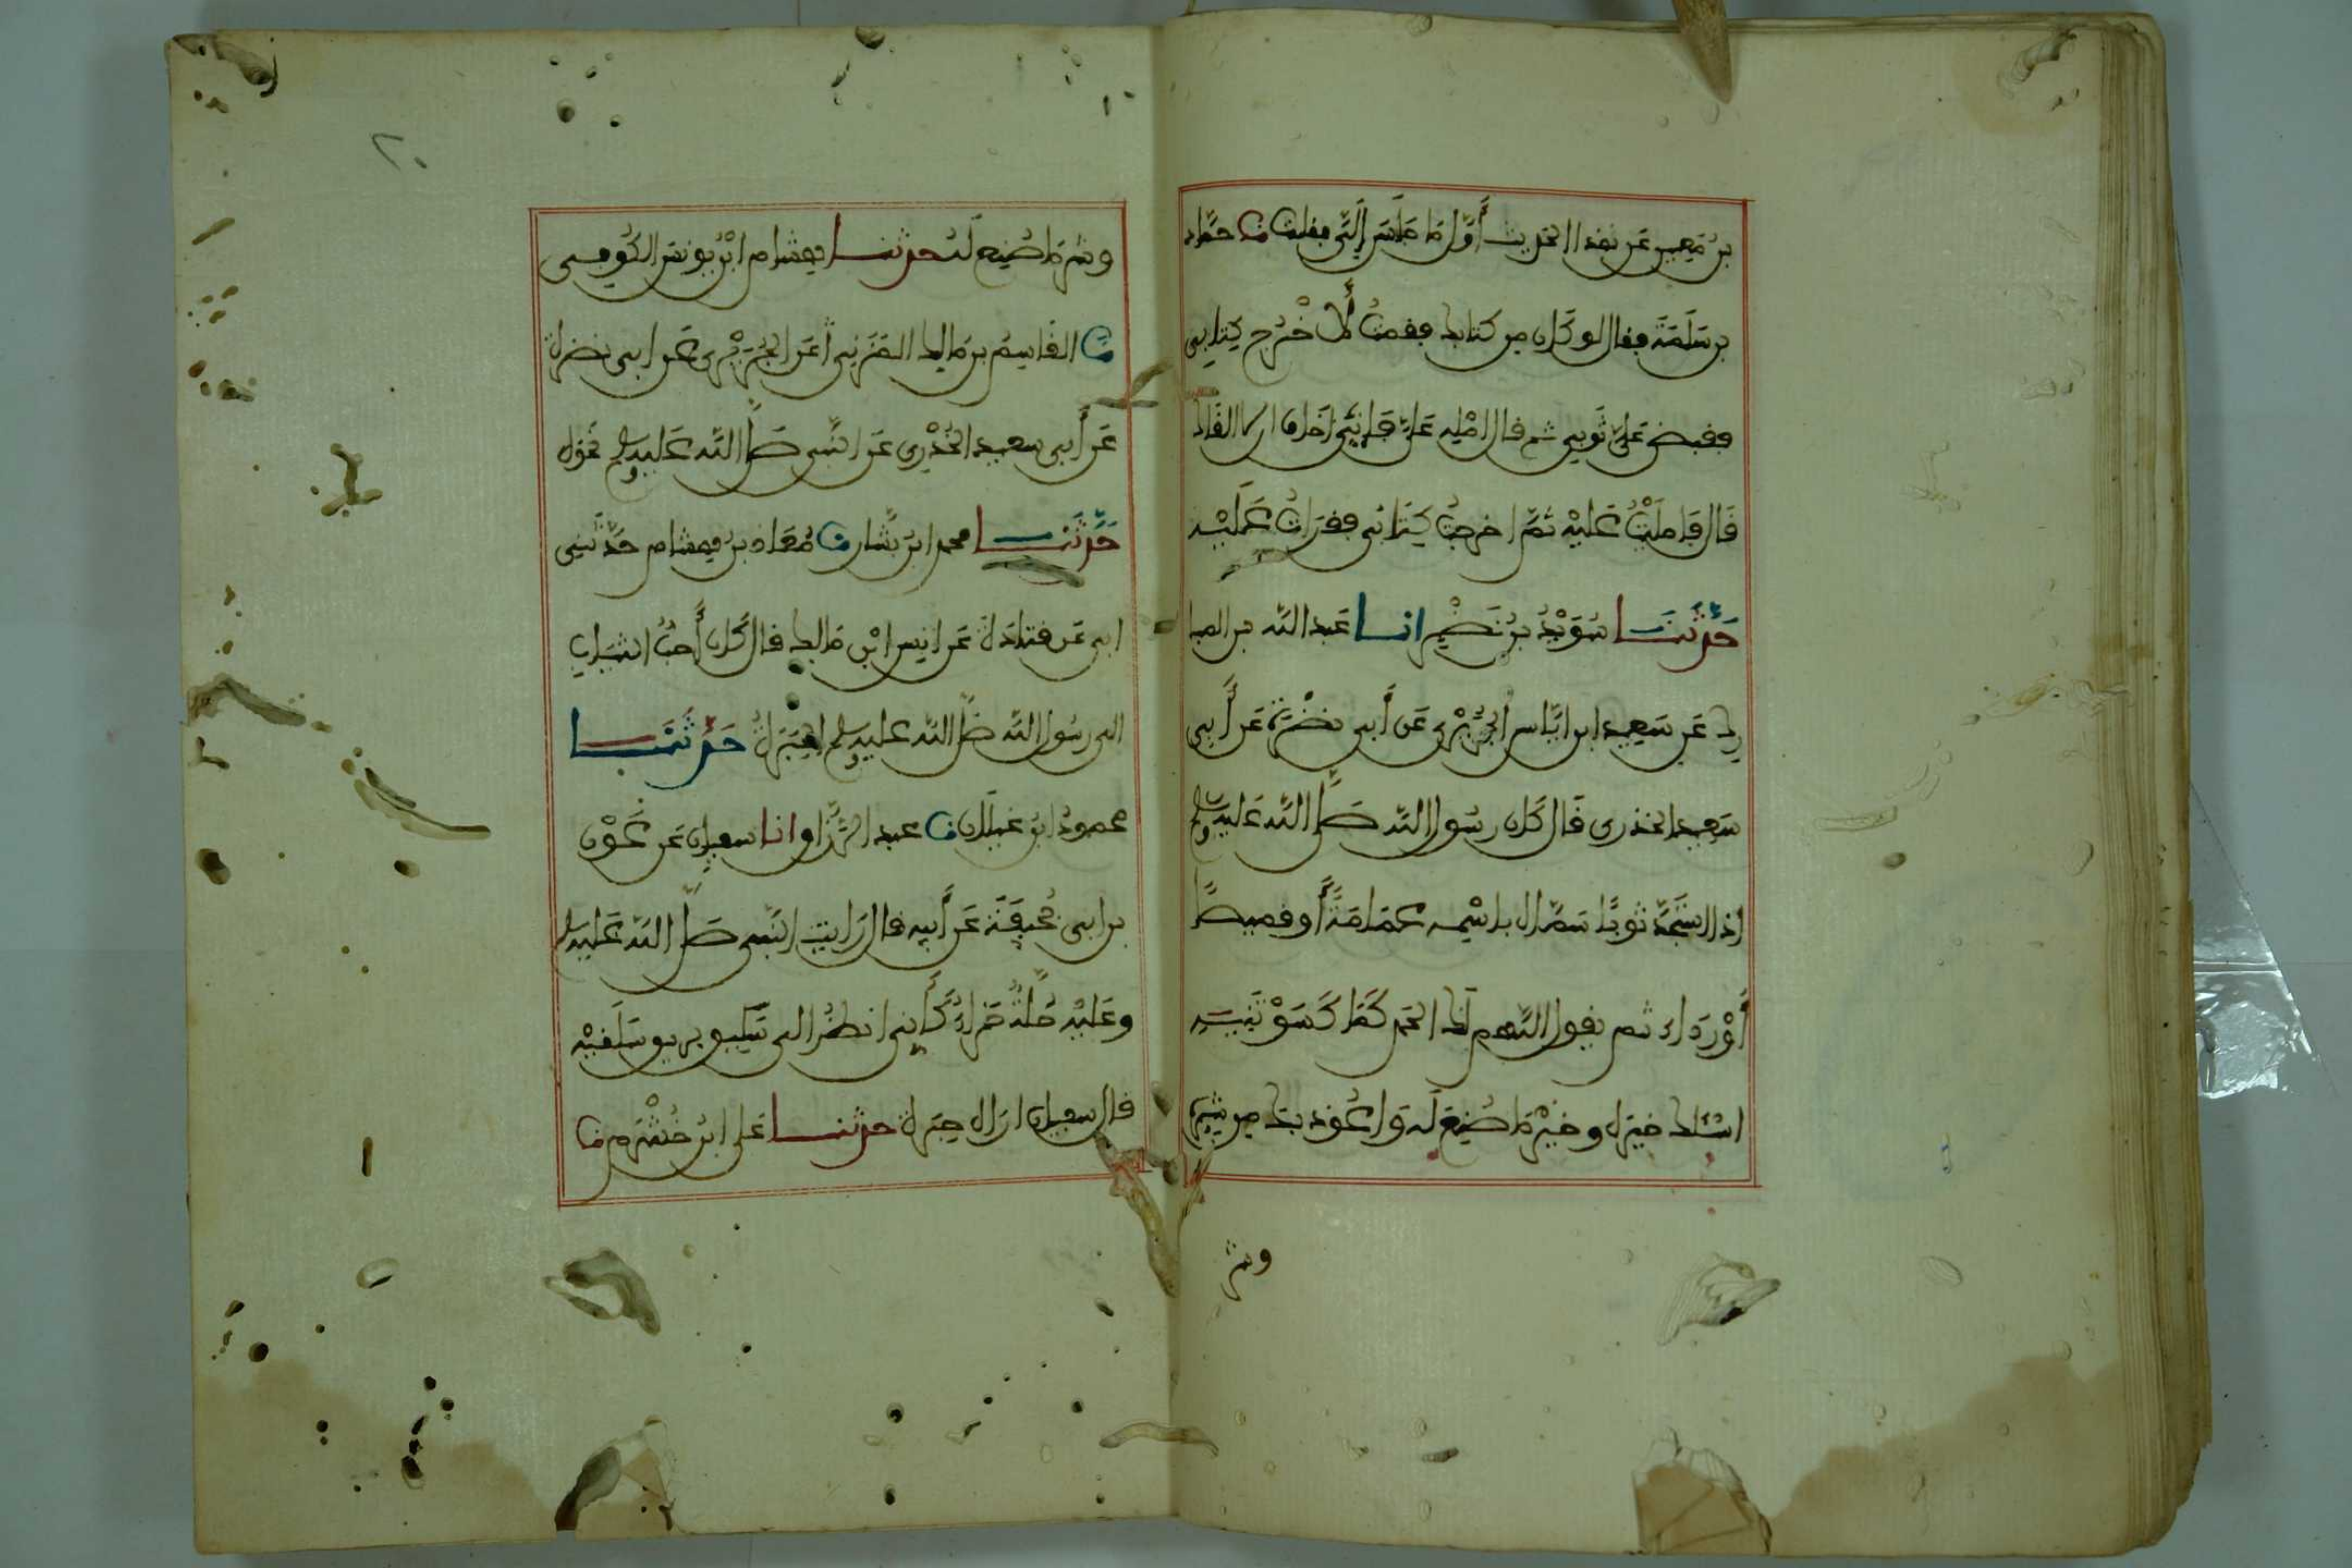 بن معين عن هذا الحديث أوّل ما جلس إليّ فقلت نا حمّاد
بن سَلَمَة فقال لو كان من كتابك فقمت لأخْرج كتابي
فقبض على ثوبي ثم قال امْلِه عَليّ فإنّي أخاف ان لا القاك
قال فامليْتُ عَليْه ثمّ اخرجتُ كتابي فقرات عليْه
حدّثنـا سُوَيْدُ بنُ نَصْر انـا عبد الله بن المبا
رك عن سَعِيد ابن ايّاس الجُرَيْري عن أبي نضْرة عن أبي
سَعيد الخدري قال كان رسُول الله صلّى الله عليه وسلم
إذا استَجَدّ ثوبًا سمّاه باسْمه عمَامَةً أو قميصًا
أوْ رداء ثم يقول اللّهم لك الحمد كمَا كَسَوْتَنِيه
اسْئلك خيره وخيْر مَا صُنِعَ له وَاعُوذ بك من شرّه
وشر
٢٠
وشر ما صُنِع لَه حدثنـا هشام ابْن يونس الكُوفي
نا القاسِم بن مالك المُزَني عن الجُرَيْري عن ابي نضرة
عن أبي سعيد الخُدْرِي عن النّبي صلّى الله عليه وسلم نحوه
حَدّثَنـا محمد ابن بَشّار نا مُعَاذ بن هشام حدّثَنِي
ابي عن قتادة عن انس ابْن مَالك قال كان أحبّ الثياب
الى رسُول الله صلّى الله عليه وسلم الحِبَرة حَدّثَنـا
محمودُ ابن غيلان نا عبد الرّزّاق انا سفيان عن عَوْن
بن ابي جُحيفَة عن أبيه قال رَايت النّبي صلّى الله عليه وسلم
وعَليْه حُلّةٌ حَمْراء كَأنّي انظُر الى بَرِيق سَاقَيْه
قال سفيان اراه حِبَرة حدثنـا علي ابن خُشْرَم نا